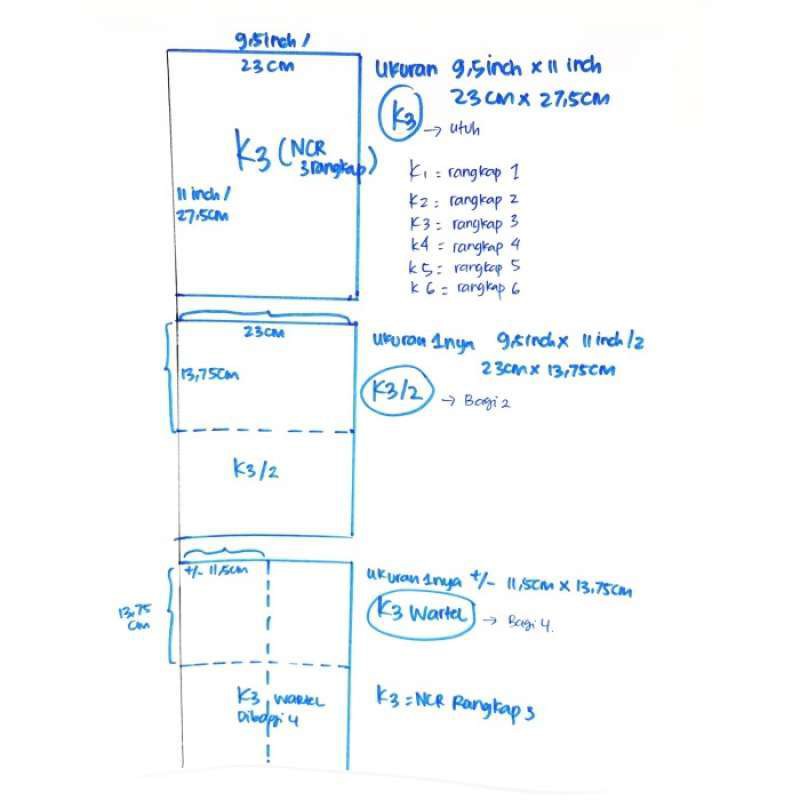 9,5inch /
23 CM
ukuran 9,5inch x 11 inch
23 CM x 27,5CM
K3
→ utuh
K3 (NCR
3rangkap)
11 inch /
27,5CM
K1 = rangkap 1
K2 = rangkap 2
K3 = rangkap 3
k4 = rangkap 4
k5 = rangkap 5
k6 = rangkap 6
23CM
13,75CM
ukuran 1nya 9,5inch x 11 inch/2
23CM x 13,75CM
K3/2
→ Bagi 2
K3/2
+/- 11,5CM
13,75
CM
ukuran 1nya +/- 11,5CM x 13,75CM
K3 Wartel
→ Bagi 4.
K3 WARTEL
Dibagi 4
K3 = NCR Rangkap 3